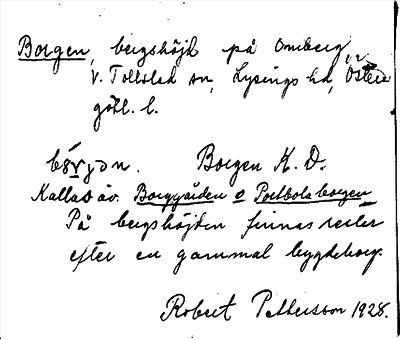 Borgen, bergshöjd på Omberg
V. Tollstad sn, Lysings hd, Öster-
götl. l.
Borgen K. D.
Kallas äv. Borggården o Postbolaborgen
På bergshöjden finnas rester
efter en gammal bygdeborg.
Robert Pettersson 1928.